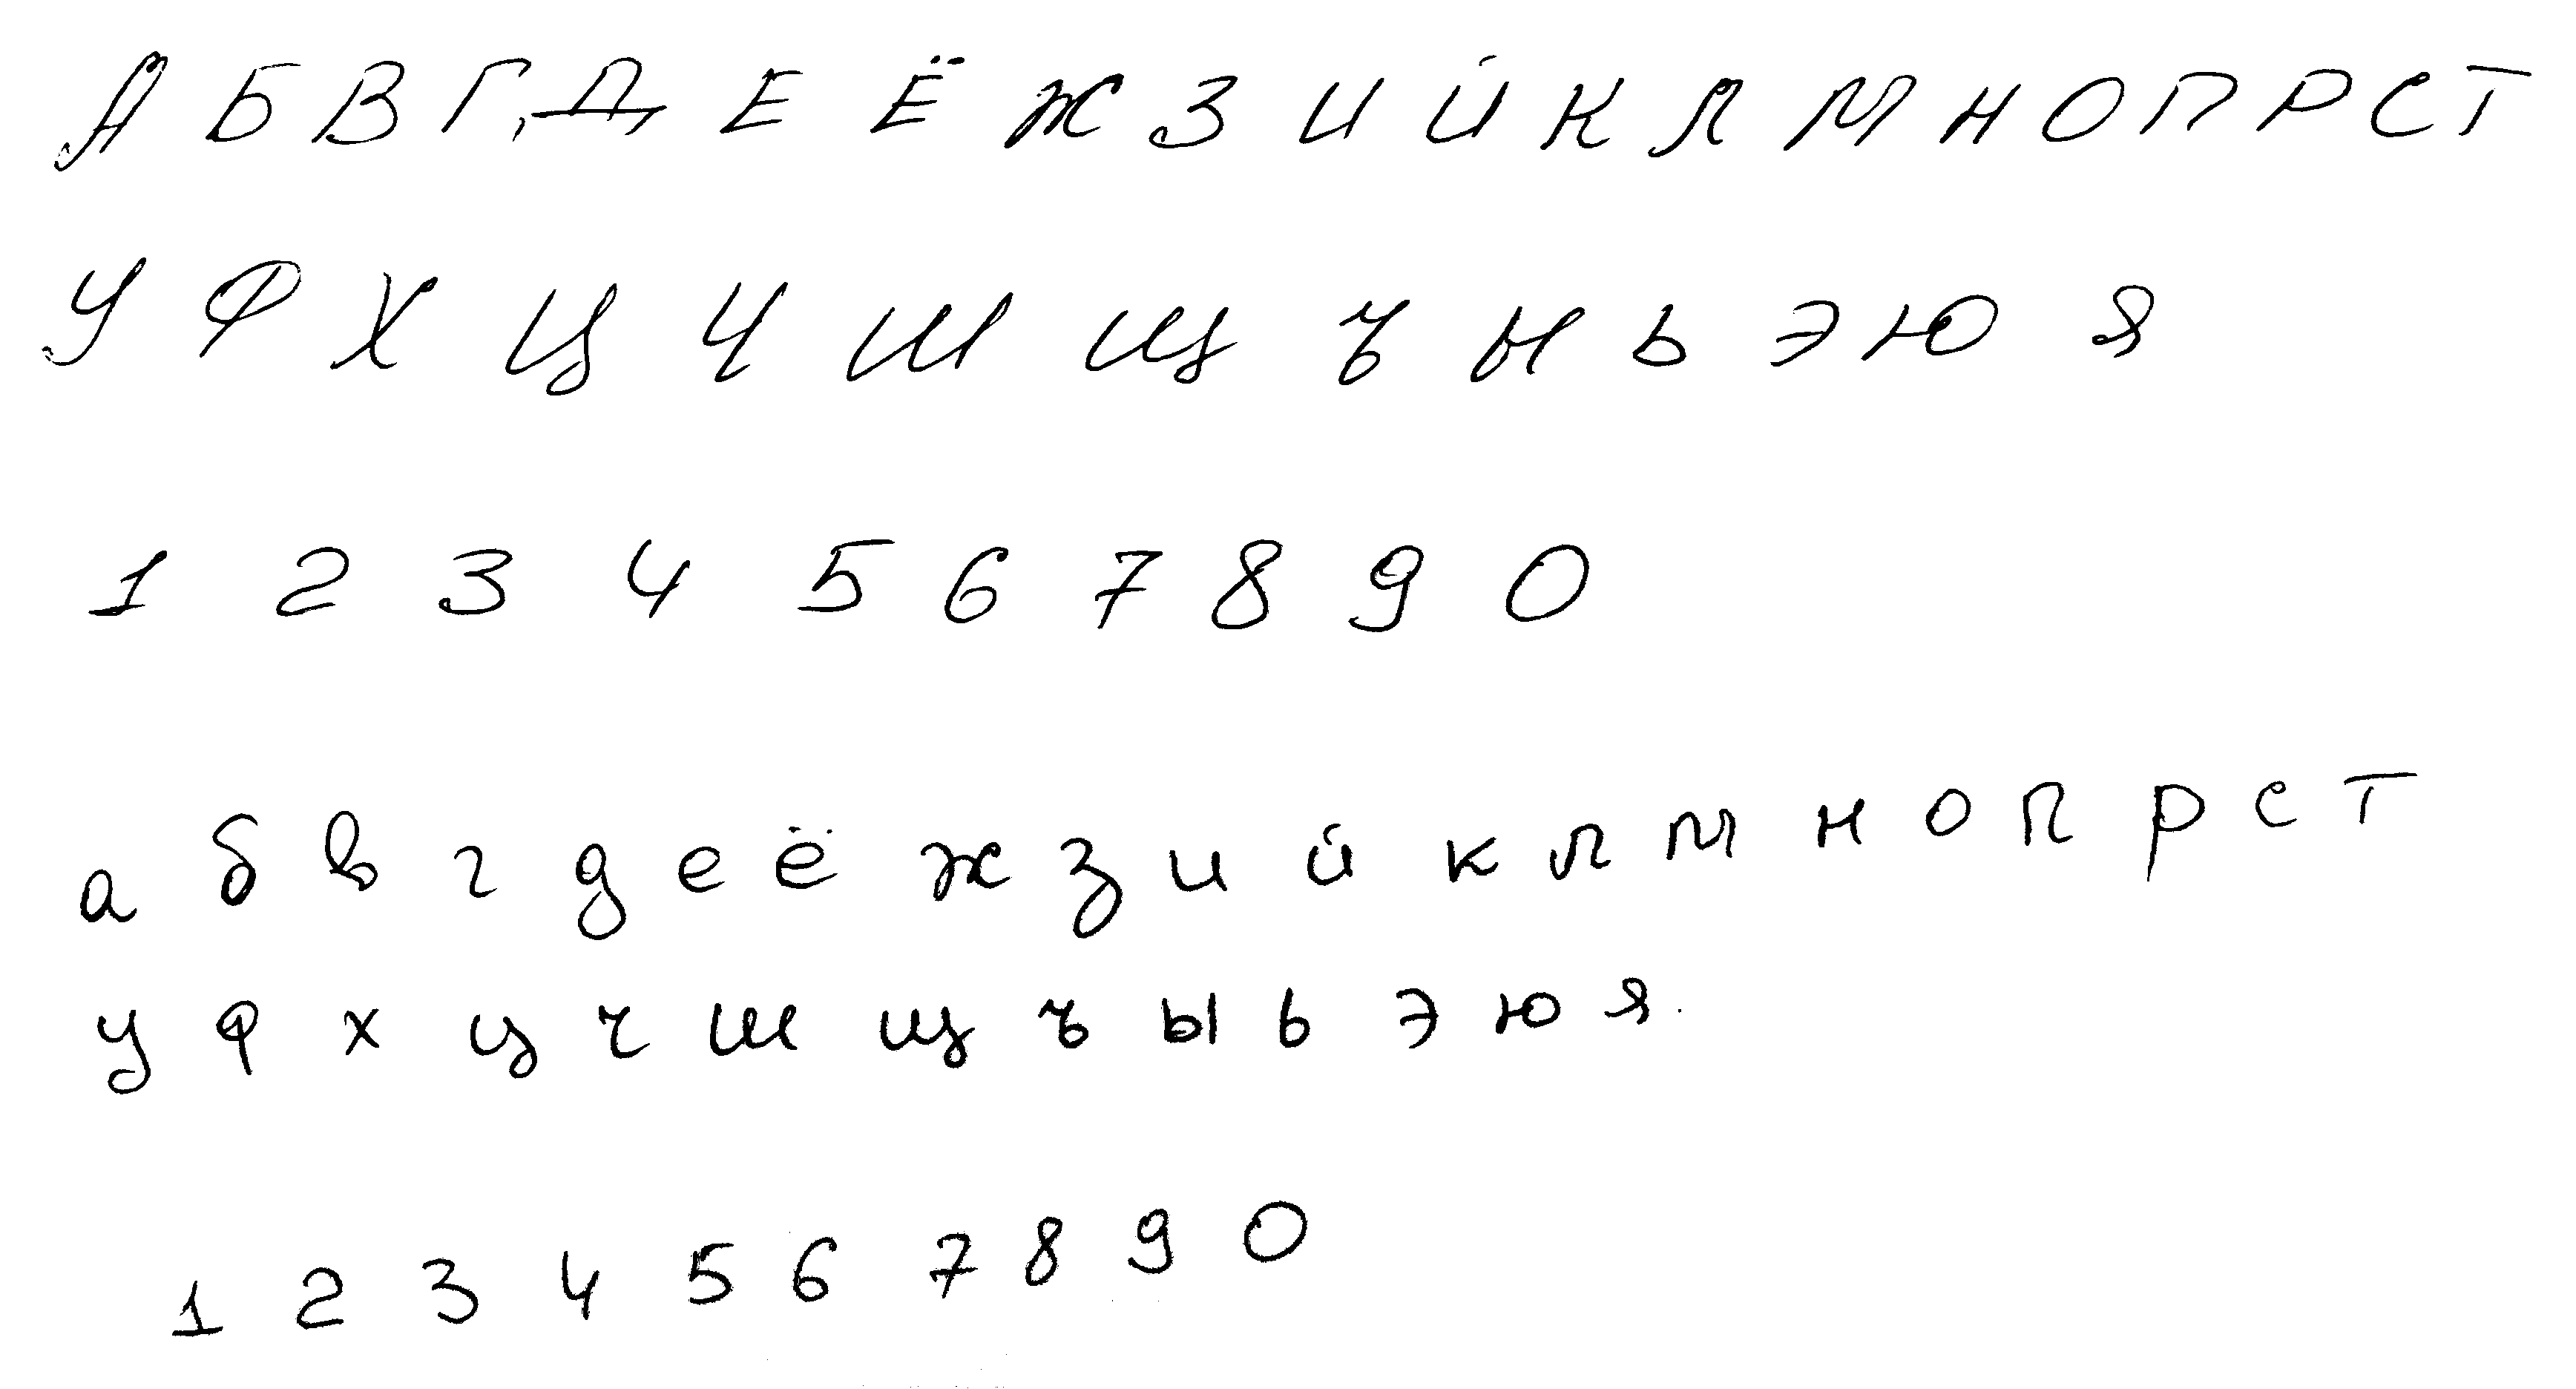 А Б В Г Д Е Ё Ж З И Й К Л М Н О П Р С Т
У Ф Х Ц Ч Ш Щ Ъ Ы Ь Э Ю Я
1 2 3 4 5 6 7 8 9 0
а б в г д е ё ж з и й к л м н о п р с т
у ф х ц ч ш щ ъ ы ь э ю я
1 2 3 4 5 6 7 8 9 0